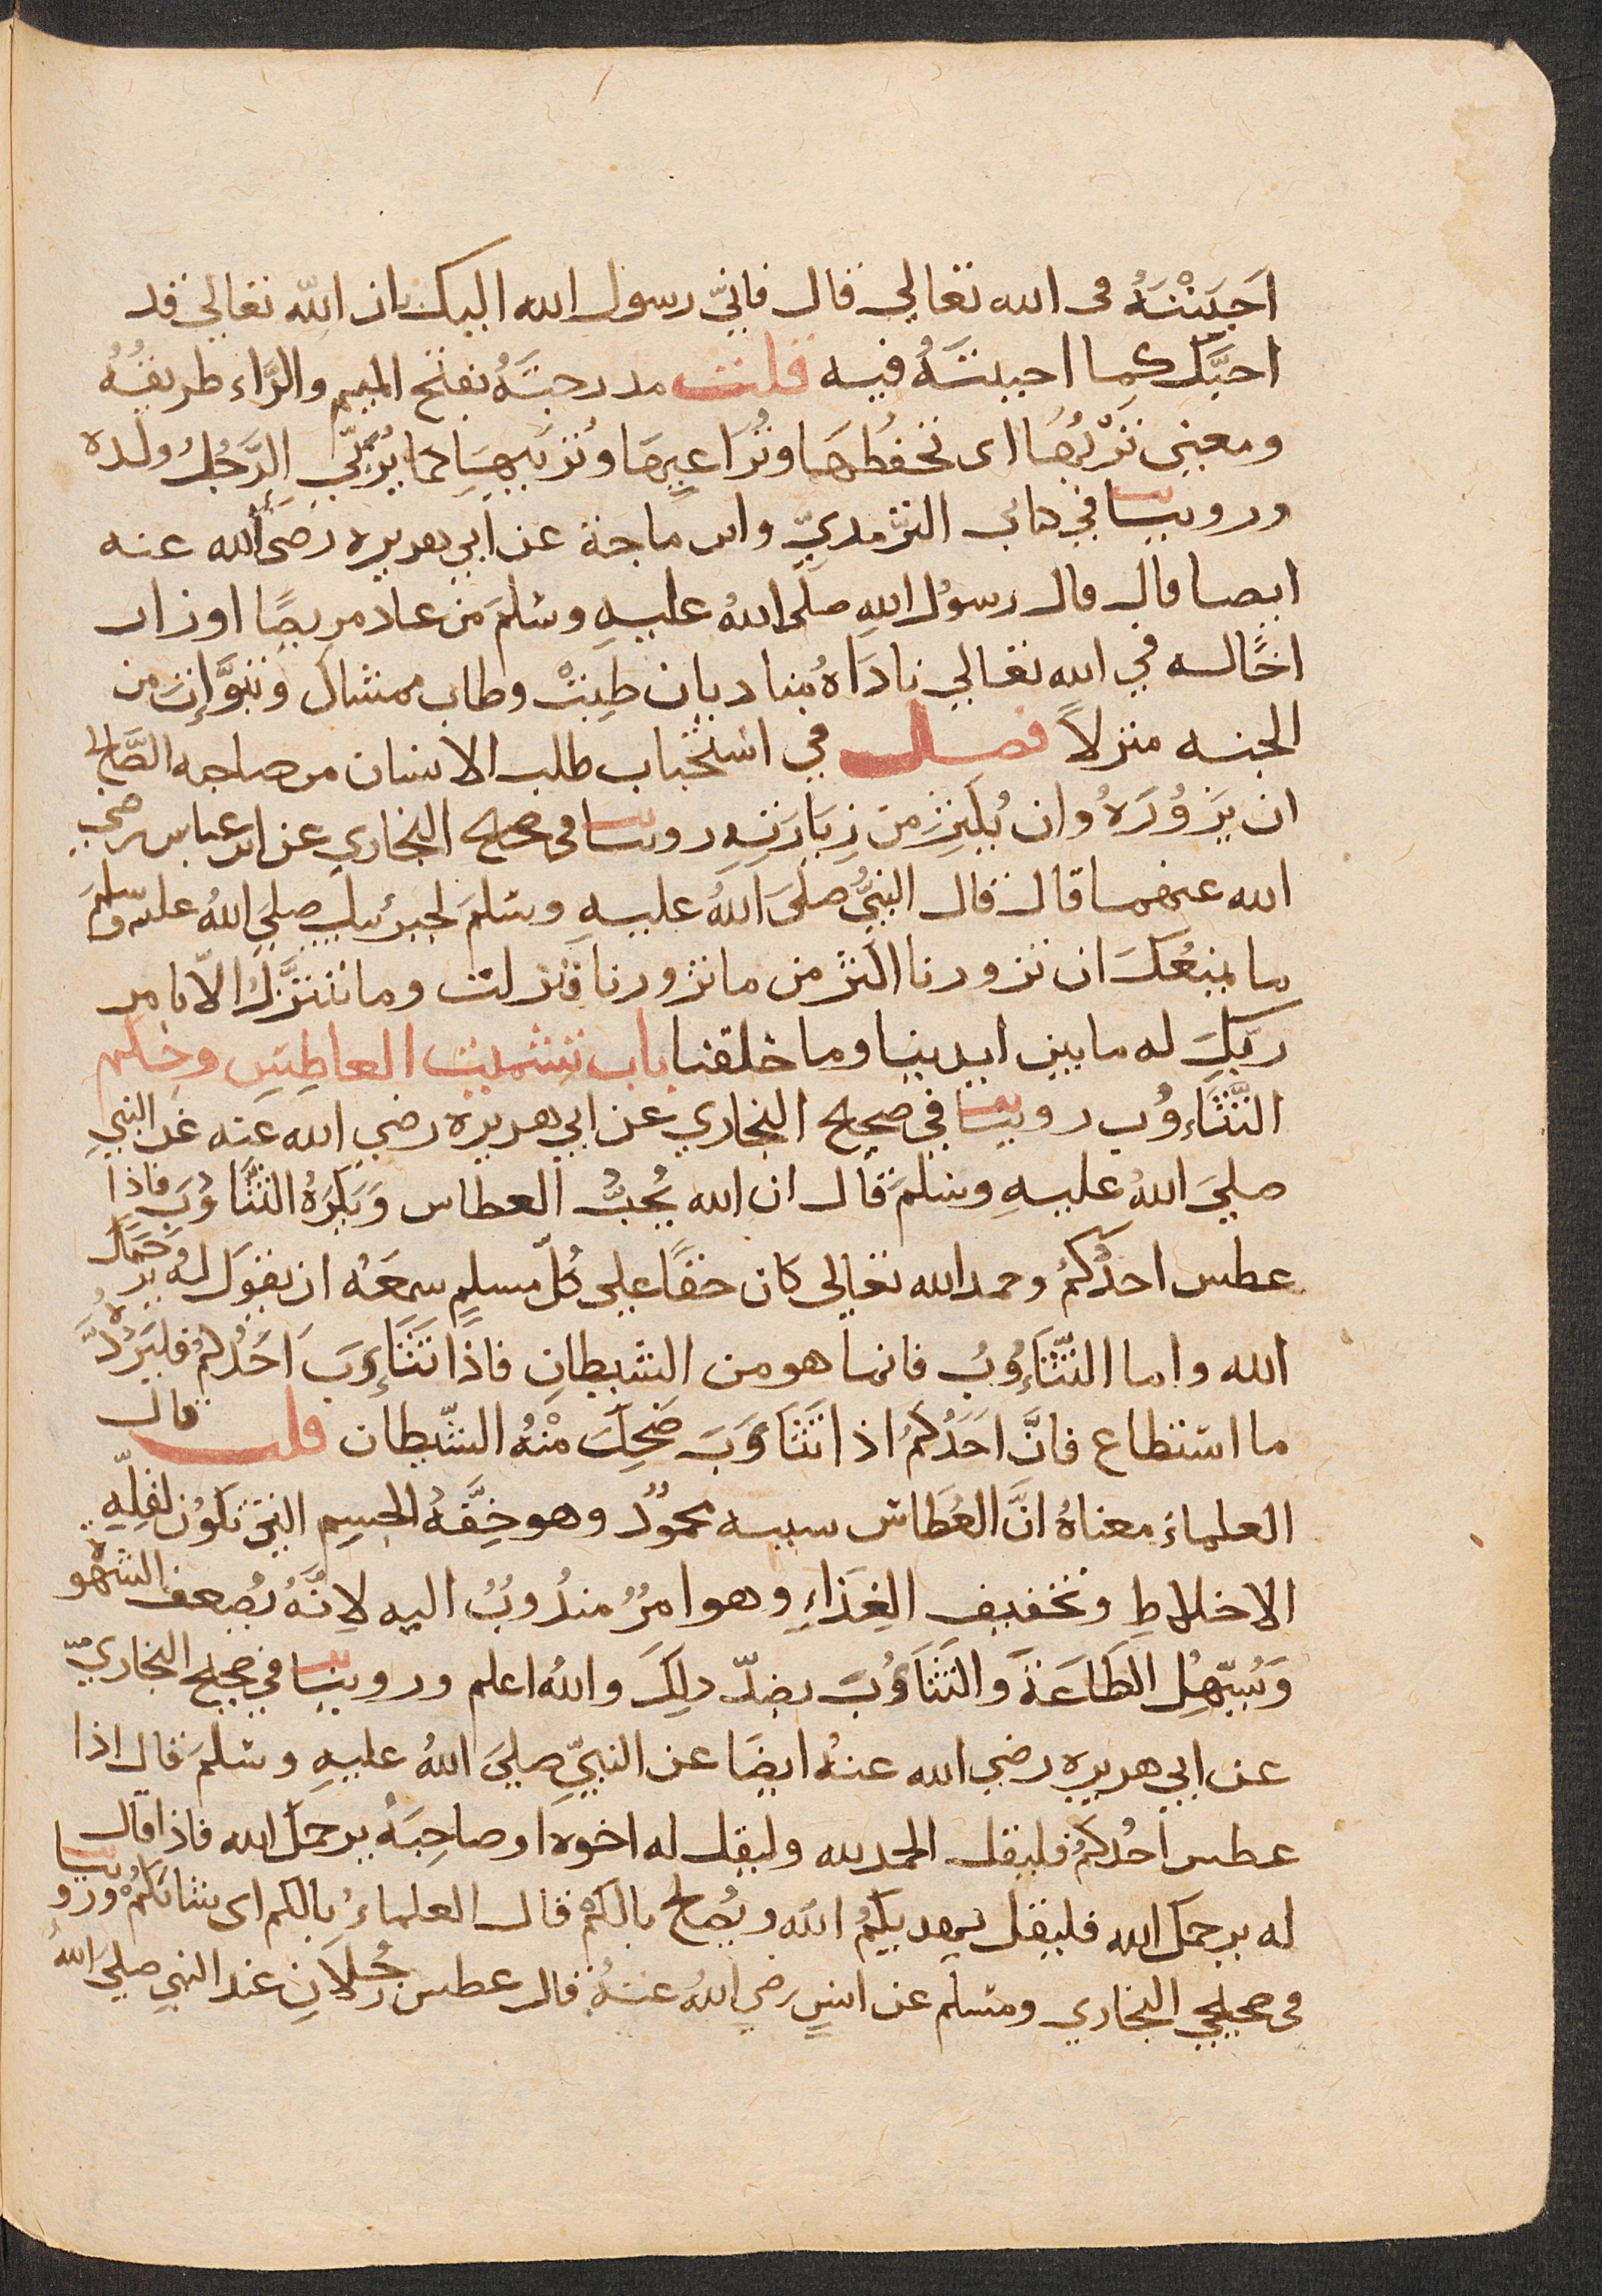 احببته في الله تعالي قال فانّي رسول الله اليك بان الله تعالي قد
احبَّك كما احببتَهُ فيه قلت مدرجَتهُ بفتح الميم والرَّاء طريقُهُ
ومعني تَرُبُّها اى تحفظها وتُراعيها وتُربّيها كما يُرَبّي الرَّجُلُ ولده
وروينا في كتابي الترمذيّ وابن ماجة عن ابي هريره رضى الله عنه
ايضا قال قال رسولُ اللهِ صلى اللهُ عليهِ وسلمَ من عاد مريضًا او زار
اخًا له في الله تعالي ناداهُ مناد بان طِبْتَ وطاب ممشاك وتبوَّات من
الجنه منزلاً فصل في استحباب طلب الانسان من صاحبه الصَّالح
ان يَزُورَهُ وان يُكثِرَ من زِيَارَتِهِ روينا فى صحيح البخاري عن ابن عباس رضي
الله عنهما قال قال النبيُّ صلى اللهُ عليهِ وسلمَ لجبرئيل صلي اللهُ عليه وسلم
ما يمنعُكَ ان تزورنا اكثر من ما تزورنا فنزلت وما نتنزَّلُ الّا بامر
ربّكَ له ما بين ايدينا وما خلفنا باب تشميت العاطِسِ وحكم
التَّثَاءُوب روينا في صحيح البخاري عن ابي هريره رضي الله عنه عن النبيِ
صلي اللهُ عليهِ وسلمَ قال ان الله يُحبُّ العطاس وَيَكرَهُ التثَاوُبَ فاذا
عطس احدُكُم وحمد الله تعالى كان حقًّا على كُلِّ مسلمٍ سمعَهُ ان يقول له يرحَمُكَ
الله واما التَّثَاوُبُ فانما هو من الشيطانِ فاذا تَثَاوَبَ اَحَدُكُم فليَرُدَّهُ
ما استطاع فانَّ اَحَدُكُم اذا تَثَاوَبَ ضَحِكَ مِنْهُ الشّيطان قلت قال
العلماءُ معناهُ انَّ العُطاس سببه محمُودٌ وهو خِفَّهُ الجسم التي تكون لقلّهِ
الاخلاطِ وتخفيف الغِذَاءِ وهو امرٌ مندُوبٌ اليه لانَّهُ يُضعف الشهوه
وَيُسهِّل الطَاعَةَ وَالتثَاوُبَ بضدّ ذلِكَ واللهُ اعلم وروينا في صحيح البخاريّ
عن ابي هريره رضي الله عنهُ ايضًا عن النبيّ صلي اللهُ عليهِ وسلمَ قال اذا
عطس احُدكُم فليقل الحمد لله وليقل له اخوه او صاحِبَهُ يرحمك الله فاذا قال
له يرحمك الله فليقل يهديكُم الله ويُصلح بالكُم قال العلماءُ بالكم اى شانكم وروينا
فى صحيحي البخاري ومسلم عن انسٍ رضي اللهُ عنهُ قال عطس رَجُلانِ عند النبي صلي اللهُ